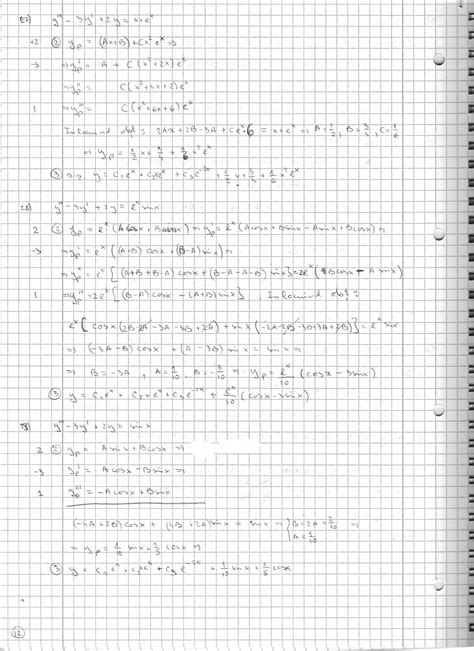 27) y''' - 3y' + 2y = x+e^x
+2 ② y_p = (Ax+B) + Cx² e^x ⇒
-3 ⇒ y_p' = A + C(x²+2x)e^x
⇒ y_p'' = C(x²+4x+2)e^x
1 ⇒ y_p''' = C(x²+6x+6)e^x
2Ax+2B-3A+Ce^x·6 = x+e^x ⇒ A=1/2, B=3/4, C=1/6
⇒ y_p = 1/2 x + 3/4 + 1/6 x² e^x
③ ⇒ y = C₁e^x + C₂xe^x + C₃e^-2x + 1/2 x + 3/4 + 1/6 x² e^x
28) y''' - 3y' + 2y = e^x sinx
2 ② y_p = e^x (A cosx + B sinx) ⇒ y_p' = e^x (A cosx + B sinx - A sinx + B cosx) ⇒
-3 ⇒ y_p' = e^x {(A+B) cosx + (B-A) sinx} ⇒
⇒ y_p'' = e^x {(A+B+B-A) cosx + (B-A-A-B) sinx} = 2e^x (B cosx - A sinx)
1 ⇒ y_p''' = 2e^x {(B-A) cosx - (A+B) sinx}.
e^x { cosx (2B-2A-3A-3B+2A) + sinx (-2A-2B-3B+3A+2B)} = e^x sinx
⇒ (-3A-B) cosx + (A-3B) sinx = sinx ⇒
⇒ B = -3A, A = 1/10, B = -3/10 ⇒ y_p = e^x/10 (cosx - 3sinx)
③ y = C₁e^x + C₂xe^x + C₃e^-2x + e^x/10 (cosx - 3sinx)
29) y''' - 3y' + 2y = sinx
2 ② y_p = A sinx + B cosx ⇒
-3 y_p' = A cosx - B sinx ⇒
1 y_p''' = -A cosx + B sinx
(-4A+2B) cosx + (4B+2A) sinx = sinx ⇒ { B = 2A = 2/10 ⇒
A = 1/10
⇒ y_p = 1/10 sinx + 1/5 cosx ⇒
③ y = C₁e^x + C₂xe^x + C₃e^-2x + 1/10 sinx + 1/5 cosx
12